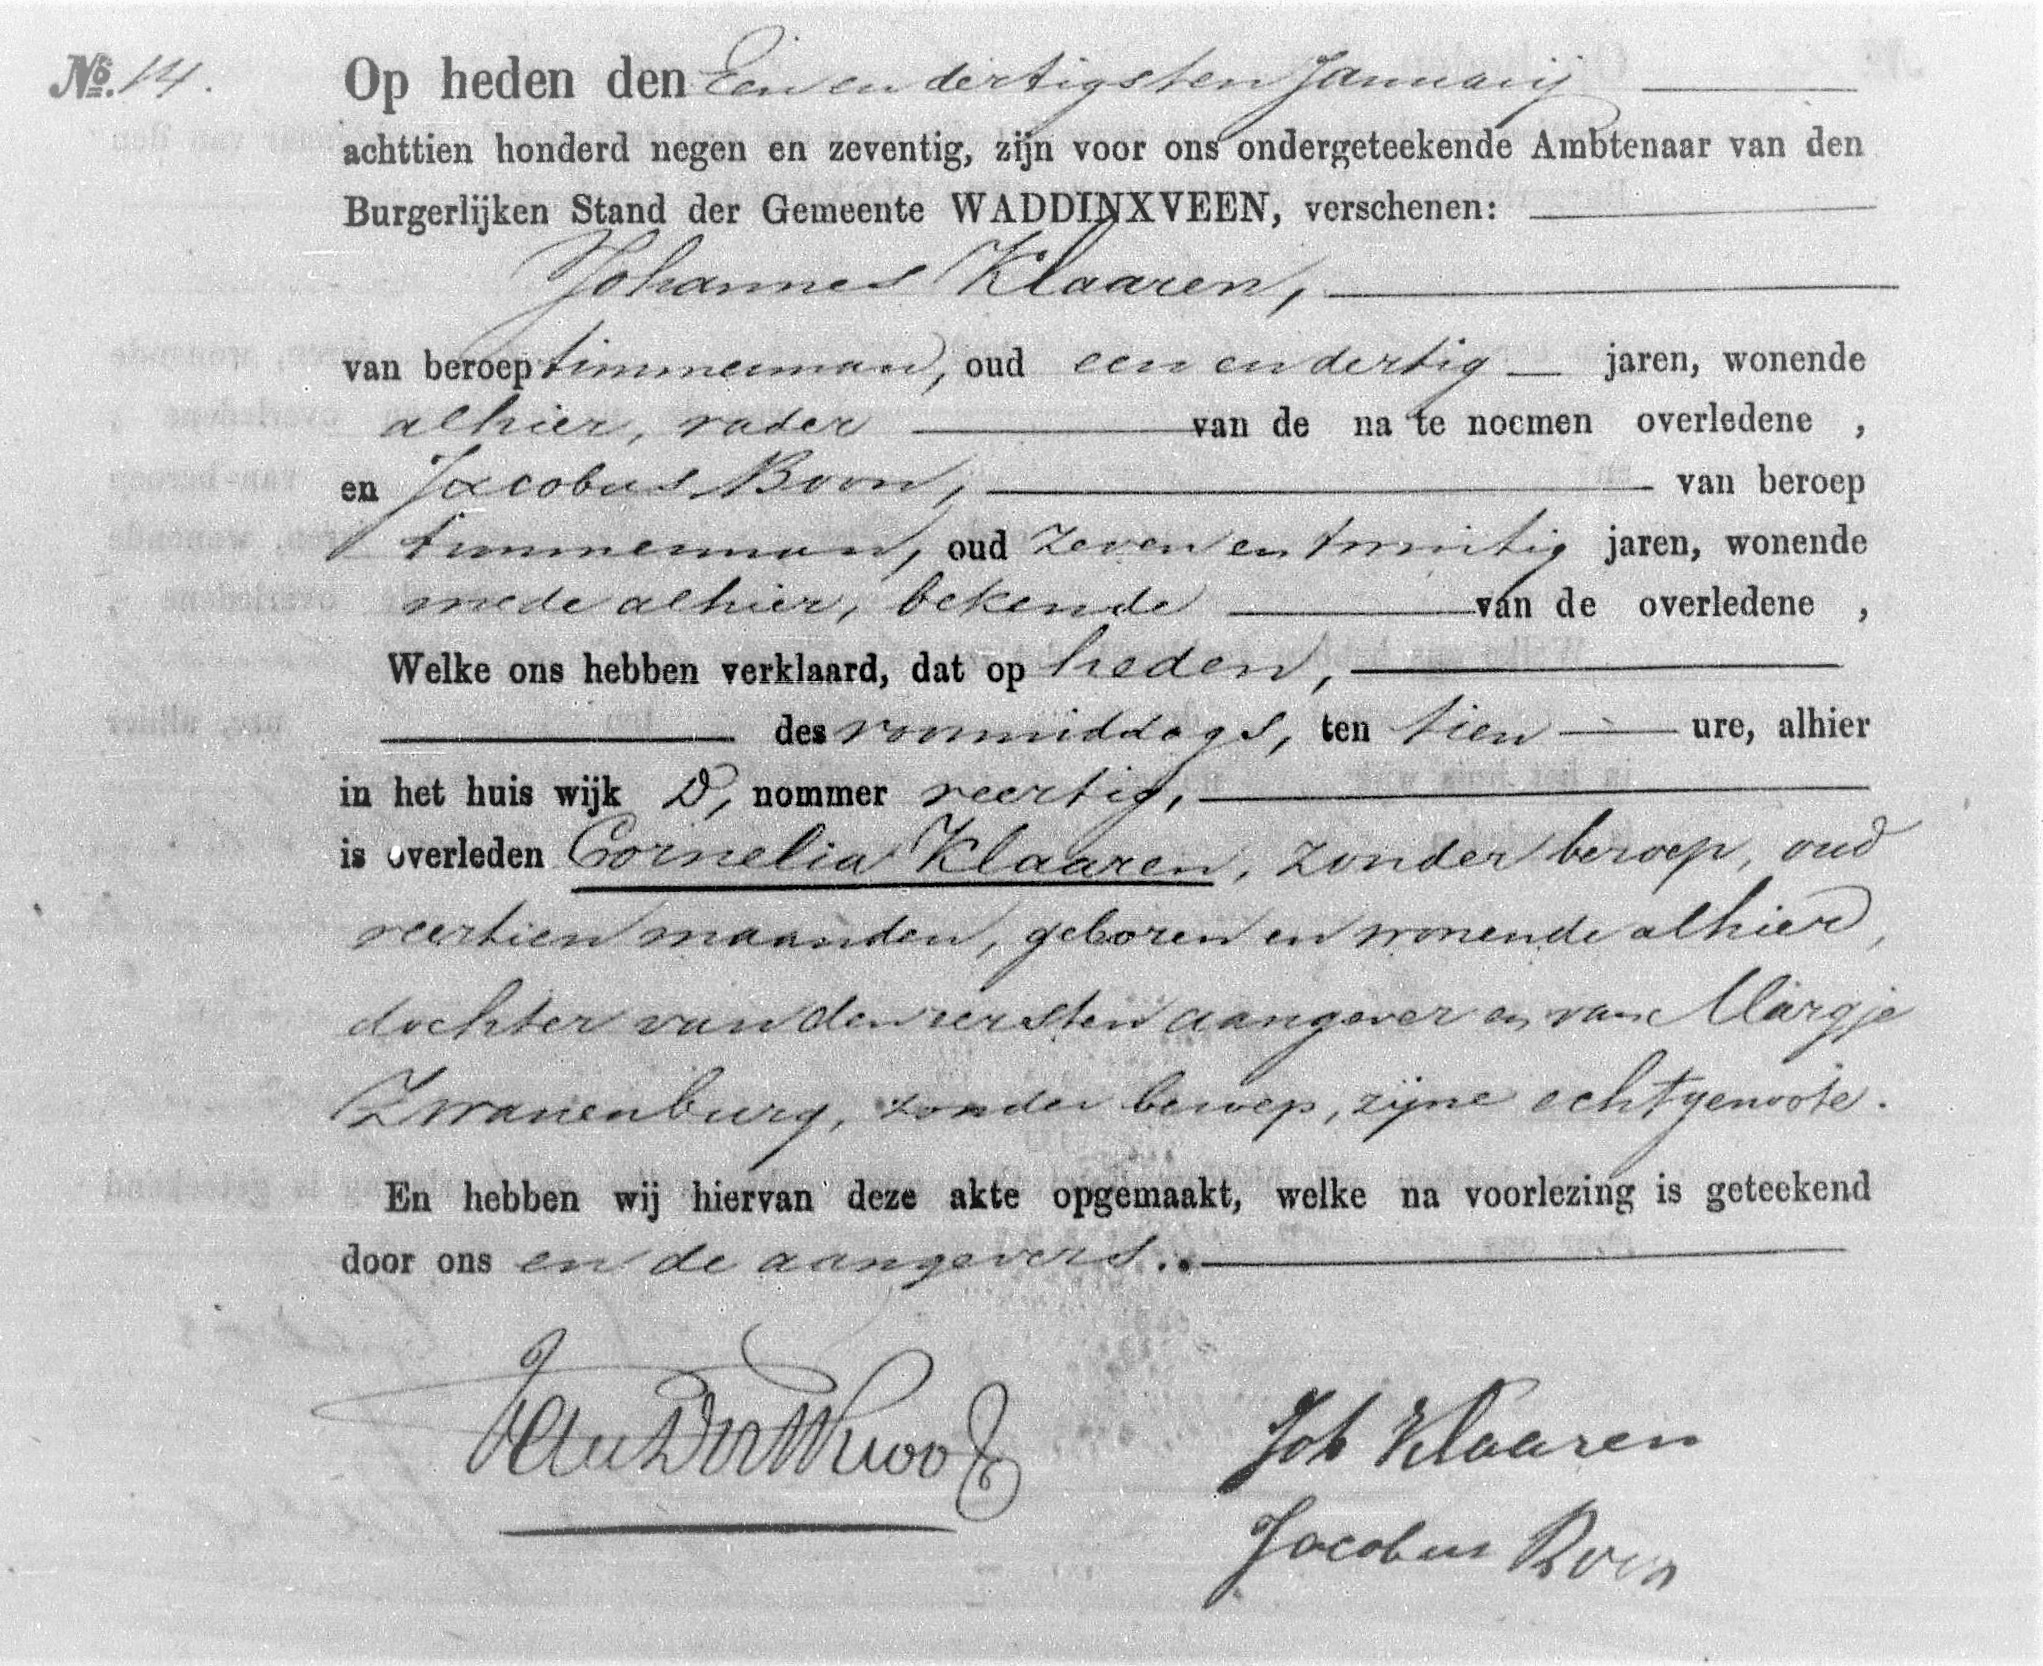 No. 14.
Op heden den Een en dertigsten Januarij
achttien honderd negen en zeventig, zijn voor ons ondergeteekende Ambtenaar van den
Burgerlijken Stand der Gemeente WADDINXVEEN, verschenen:
Johannes Klaaren,
van beroep timmerman, oud een en dertig jaren, wonende
alhier, vader van de na te noemen overledene ,
en Jacobus Boon, van beroep
timmerman, oud zeven en twintig jaren, wonende
mede alhier, bekende van de overledene ,
Welke ons hebben verklaard, dat op heden,
des voormiddags, ten tien ure, alhier
in het huis wijk D, nommer veertig,
is overleden Cornelia Klaaren, zonder beroep, oud
veertien maanden, geboren en wonende alhier,
dochter van den eersten aangever en van Margje
Zwanenburg, zonder beroep, zijne echtgenoote.
En hebben wij hiervan deze akte opgemaakt, welke na voorlezing is geteekend
door ons en de aangevers.
Joh Klaaren
Jacobus Boon